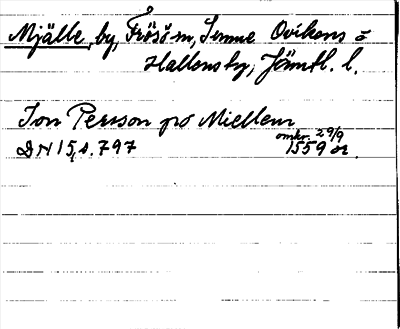 Mjälle, by, Frösö sn, Sunne Ovikens o
Hallens tg, Jämtl. l.
Jon Person po Miellem
omkr. 29/9
DN 15, s. 797 1559 or.